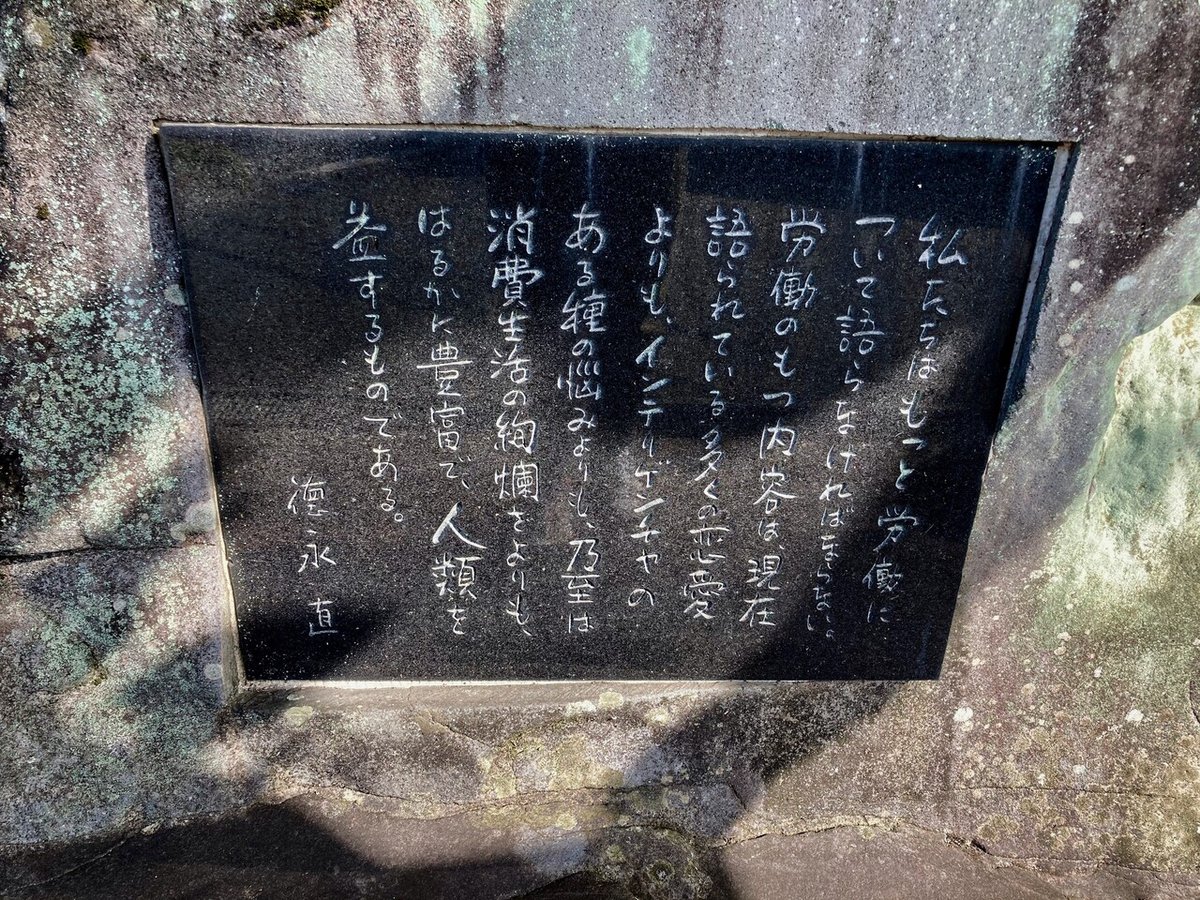 私たちはもっと労働に
ついて語らなければならない。
労働のもつ内容は、現在
語られている多くの恋愛
よりも、インテリゲンチャの
ある種の悩みよりも、乃至は
消費生活の絢爛さよりも、
はるかに豊富で、人類を
益するものである。
徳永直